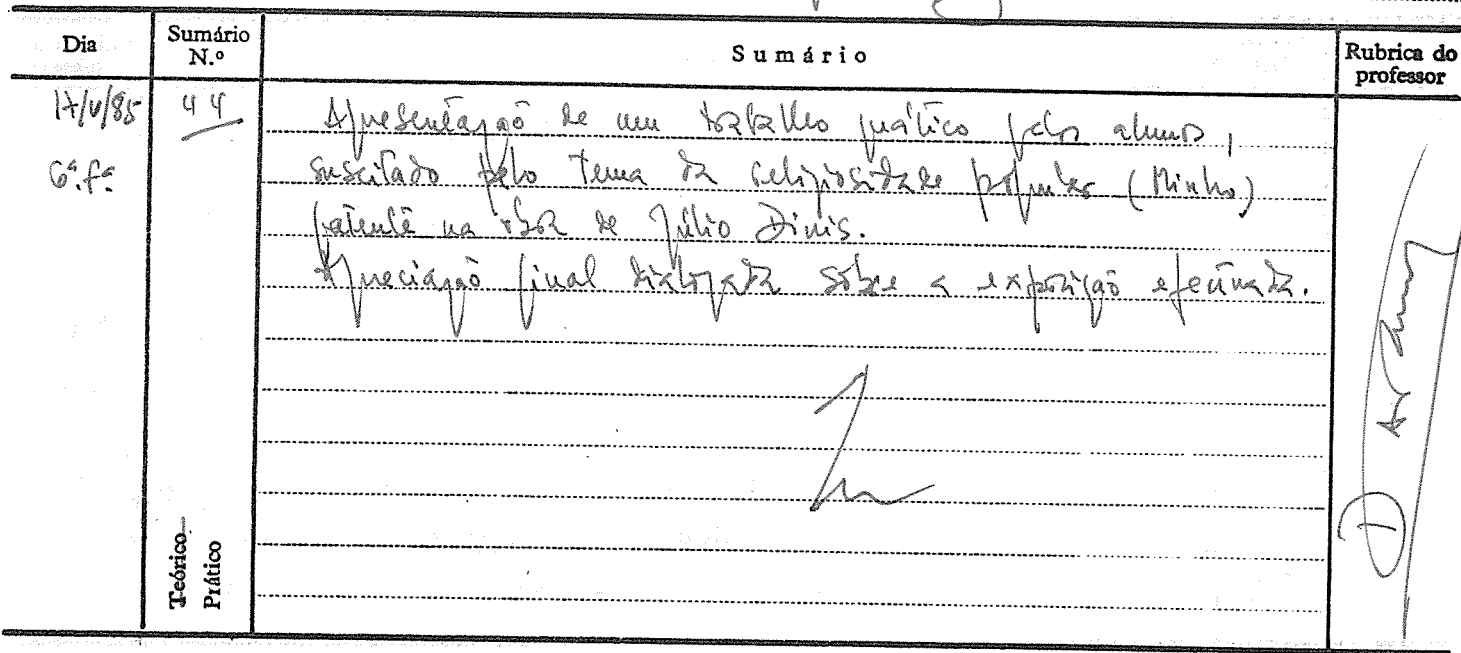 Dia
Sumário N.º
Sumário
Rubrica do professor
17/V/85
44
Apresentação de um trabalho prático pelos alunos,
6ª.fª
suscitado pelo tema da religiosidade popular (Minho)
patente na obra de Júlio Dinis.
Apreciação final dialogada sôbre a exposição efectuada.
Teórico
Prático